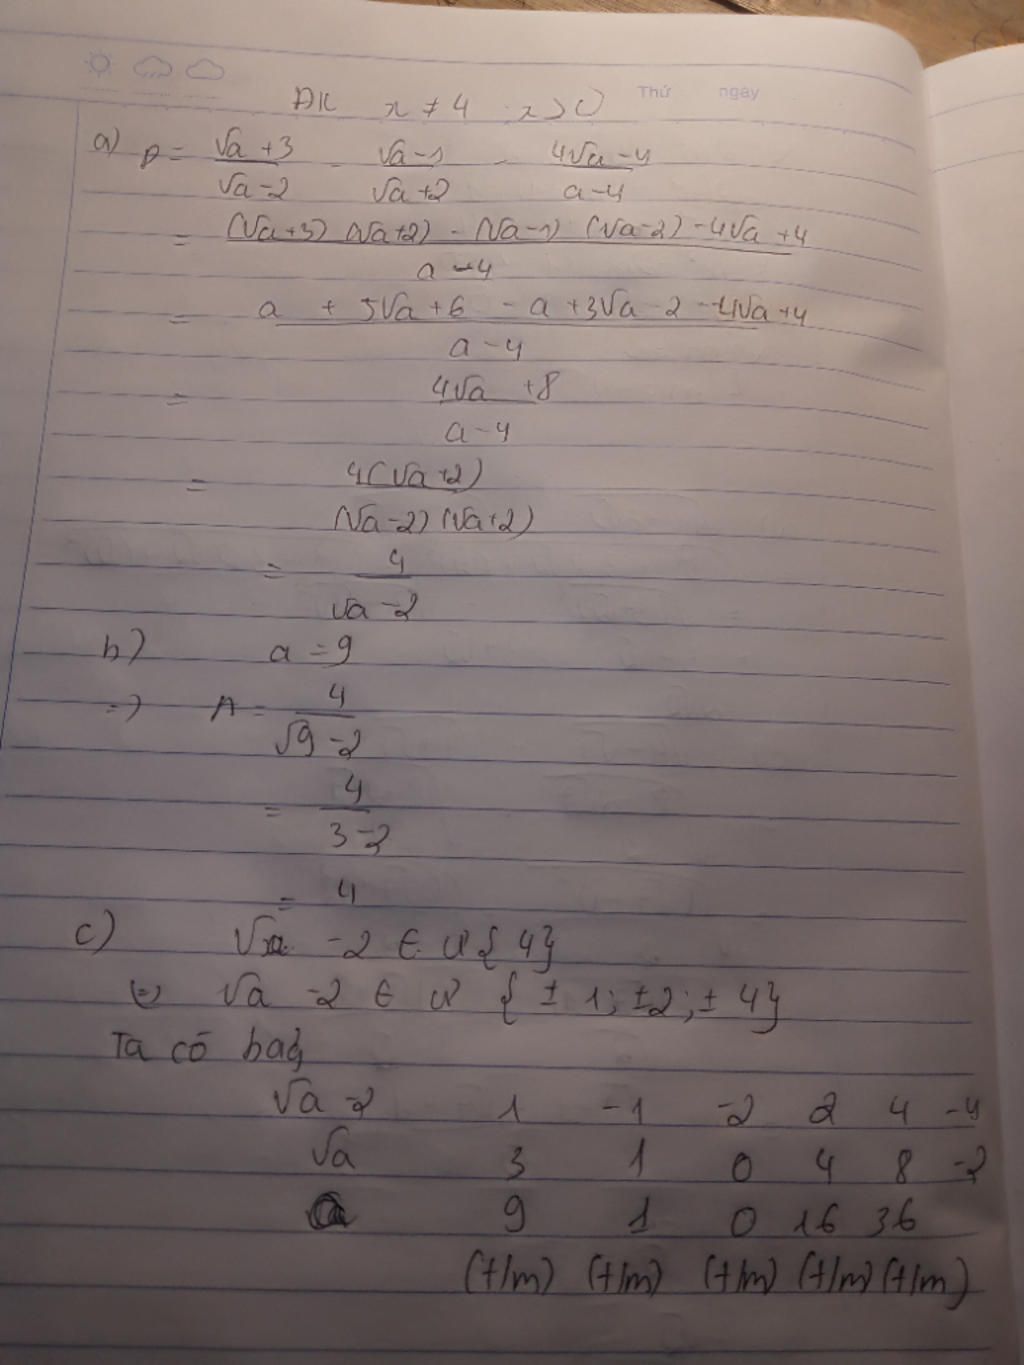 Thứ ngày
ĐK x ≠ 4 x > 0
a) P = (√a + 3)/(√a - 2) - (√a - 1)/(√a + 2) - (4√a - 4)/(a - 4)
= ((√a + 3)(√a + 2) - (√a - 1)(√a - 2) - 4√a + 4)/(a - 4)
= (a + 5√a + 6 - a + 3√a - 2 - 4√a + 4)/(a - 4)
= (4√a + 8)/(a - 4)
= 4(√a + 2)/((√a - 2)(√a + 2))
= 4/(√a - 2)
b) a = 9
=> A = 4/(√9 - 2)
= 4/(3 - 2)
= 4
c) √a - 2 ∈ Ư {4}
<=> √a - 2 ∈ Ư {± 1; ±2; ± 4}
Ta có
√a - 2 1 -1 -2 2 4 -4
√a 3 1 0 4 8 -2
a 9 1 0 16 36
(t/m) (t/m) (t/m) (t/m) (t/m)